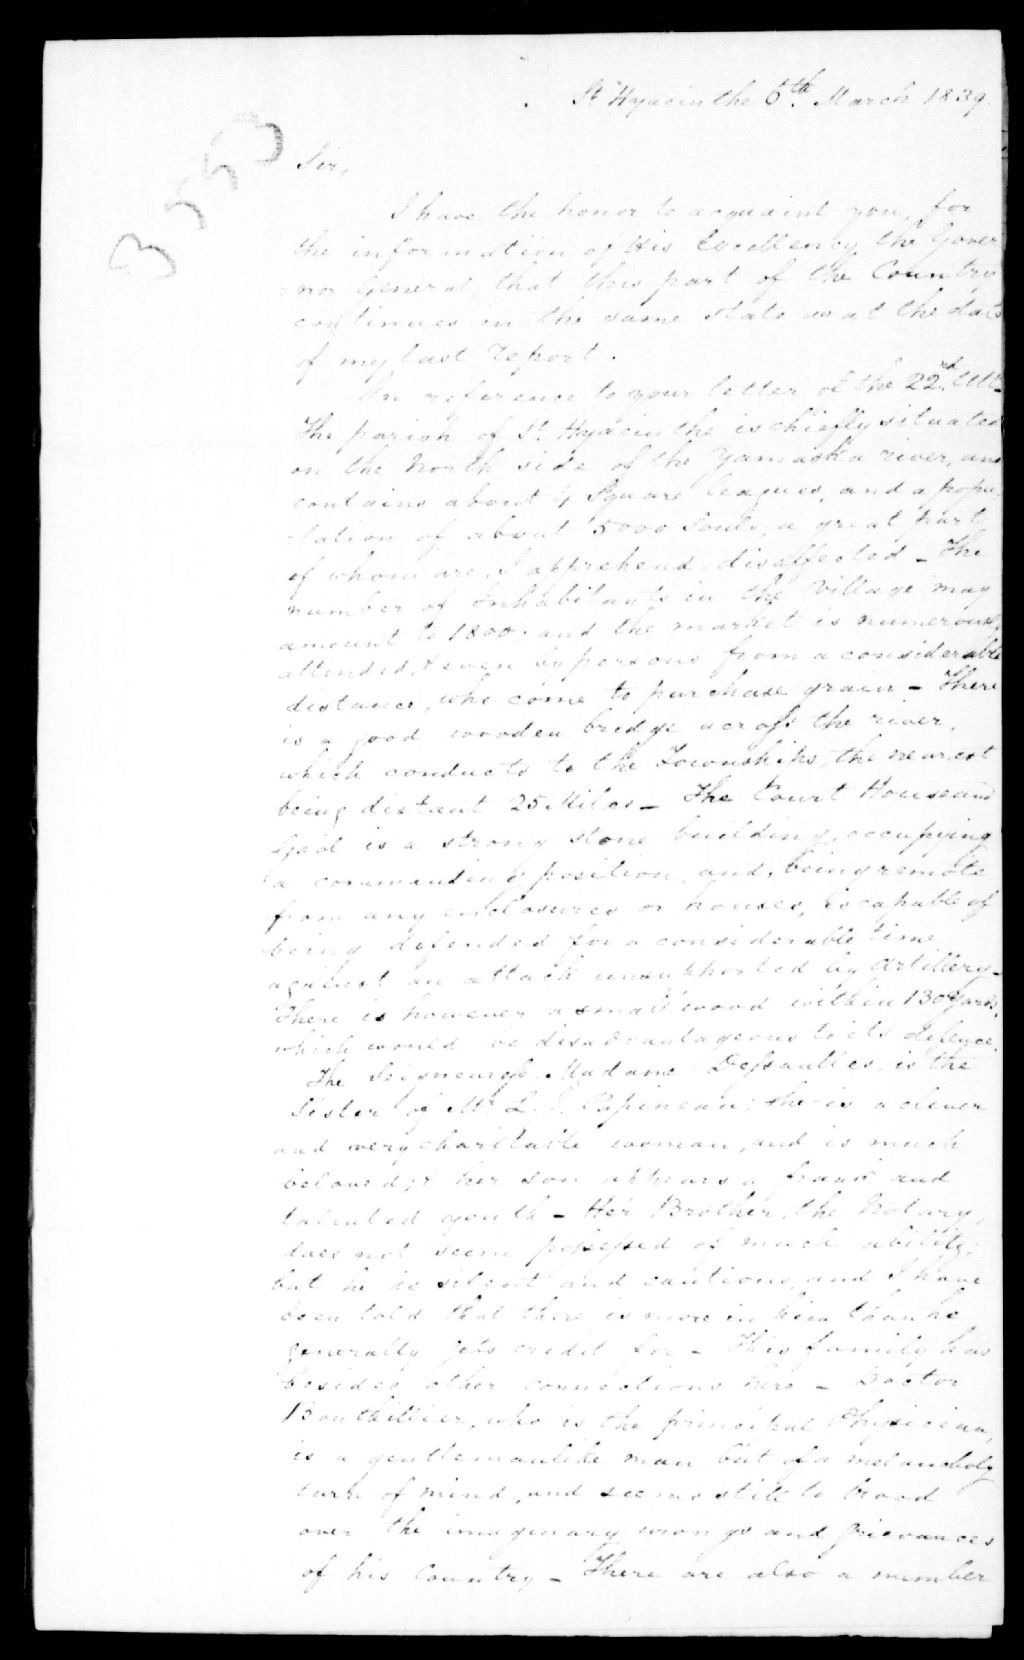 St Hyacinthe 6th March 1839.
3553
Sir,
I have the honor to acquaint you, for
the information of His Excellency the Gover
nor General, that this part of the Country
continues in the same state as at the date
of my last report.
In reference to your letter of the 22nd Ulto
The parish of St Hyacinthe is chiefly situated
on the North side of the Yamaska river, and
contains about 4 Square leagues, and a popu-
-lation of about 5000 Souls, a great part
of whom are, I apprehend, disaffected - The
number of Inhabitants in the Village may
amount to 1800; and the market is numerously
attended, & even by persons from a considerable
distance, who come to purchase grain - There
is a good wooden bridge across the river,
which conducts to the Townships, the nearest
being distant 25 Miles - The Court House and
Gaol is a strong stone building, occupying
a commanding position, and, being remote
from any enclosures or houses, is capable of
being defended for a considerable time
against an attack unsupported by Artillery -
There is however a small wood within 130 Yards,
which would be disadvantageous to its defence.
The Seigneuress, Madame Dessaulles, is the
Sister of Mr L. J. Papineau; she is a clever
and very charitable woman, and is much
beloved; & her son appears a frank and
talented youth - Her Brother, the Notary,
does not seem possessed of much ability;
but he is silent and cautious, and I have
been told that there is more in him than he
generally gets credit for - This family has
besides other connections here - Doctor
Bouthillier, who is the principal Physician,
is a gentlemanlike man but of a melancholy
turn of mind, and seems still to brood
over the imaginary wrongs and grievances
of his Country - There are also a number